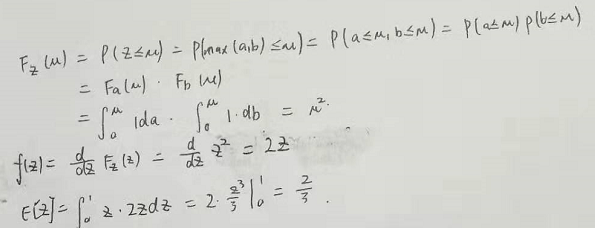 F_z(u) = P(z≤u) = P(max(a,b) ≤u) = P(a≤u, b≤u) = P(a≤u) P(b≤u)
= Fa(u) · F_b(u)
= ∫_0^u 1da · ∫_0^u 1·db = u².
f(z) = d/dz F_z(z) = d/dz z² = 2z
E[z] = ∫_0^1 z·2zdz = 2· z³/3 |_0^1 = 2/3.